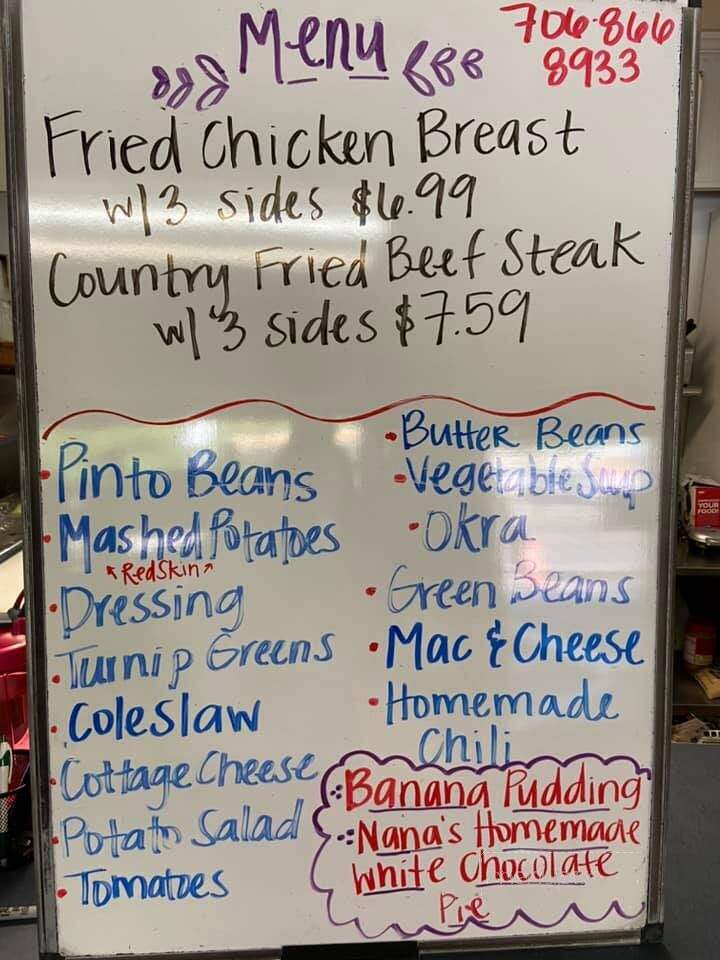 Menu
706-866
8933
Fried Chicken Breast
w/3 sides $6.99
Country Fried Beef Steak
w/3 sides $7.59
• Pinto Beans
• Mashed Potatoes
Redskin
• Dressing
• Turnip Greens
• Coleslaw
• Cottage Cheese
• Potato Salad
• Tomatoes
• Butter Beans
• Vegetable Soup
• Okra
• Green Beans
• Mac & Cheese
• Homemade
Chili
Banana Pudding
Nana's Homemade
White Chocolate
Pie
YOUR
FOOD